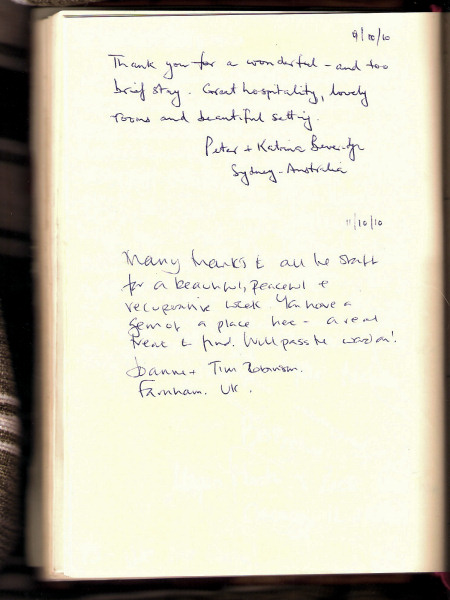 9/10/10
Thank you for a wonderful - and too
brief stay. Great hospitality, lovely
rooms and beautiful setting.
Peter + Katrina Beveridge
Sydney - Australia
11/10/10
Many thanks to all the staff
for a beautiful, peaceful +
recuperative week. You have a
gem of a place here - a real
treat to find. Will pass the word on!
Joanne + Tim Robinson.
Farnham. UK.